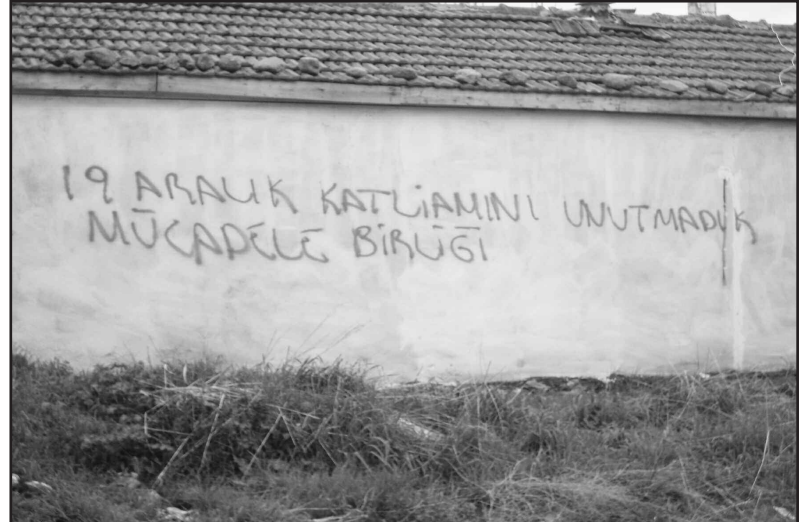 19 ARALIK KATLİAMINI UNUTMADIK
MÜCADELE BİRLİĞİ